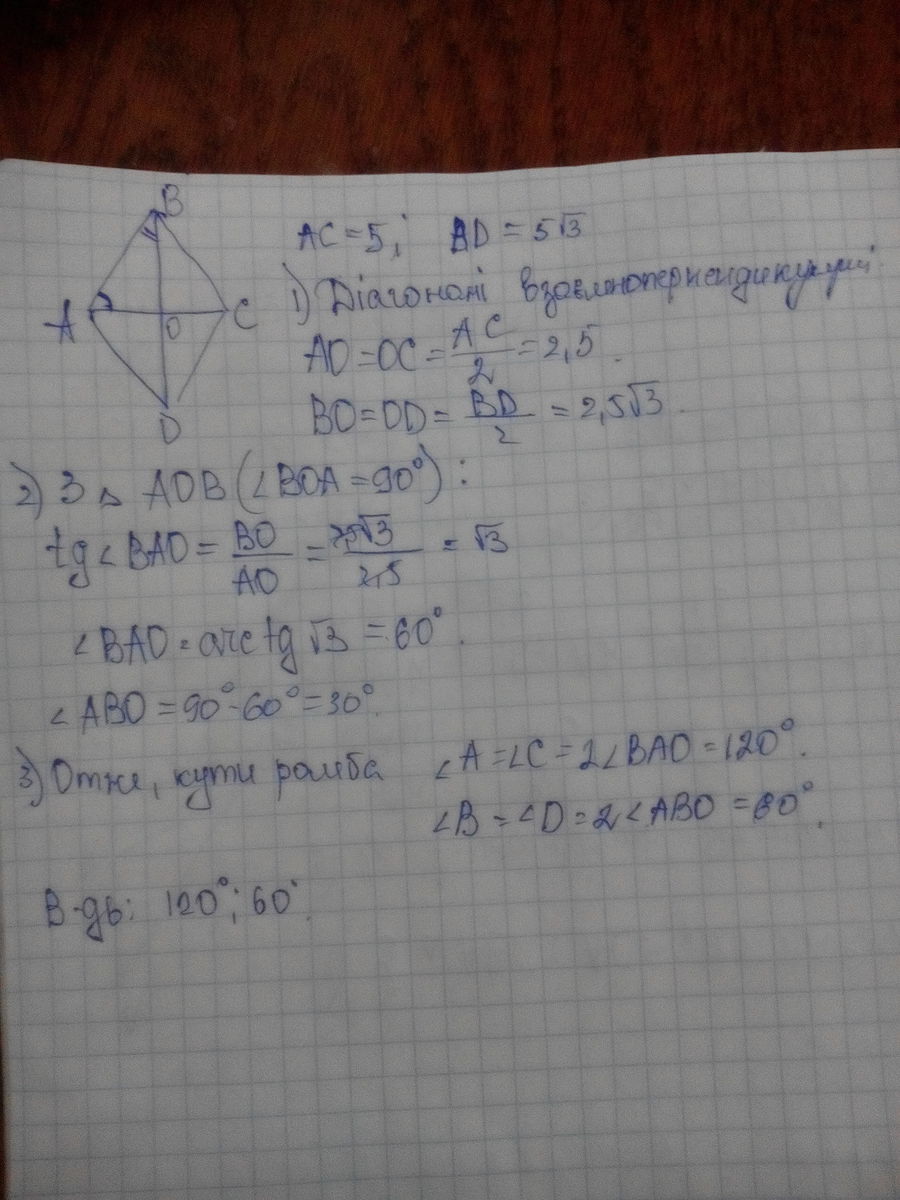 B
A
O
C
D
AC = 5; BD = 5√3
1) Діагоналі взаємноперпендикулярні
AO = OC = AC/2 = 2,5.
BO = OD = BD/2 = 2,5√3.
2) З △ AOB (∠BOA = 90°):
tg∠BAO = BO/AO = 2,5√3/2,5 = √3
∠BAO = arctg √3 = 60°.
∠ABO = 90° - 60° = 30°.
3) Отже, кути ромба ∠A = ∠C = 2∠BAO = 120°.
∠B = ∠D = 2∠ABO = 60°.
В-дь: 120°; 60°.